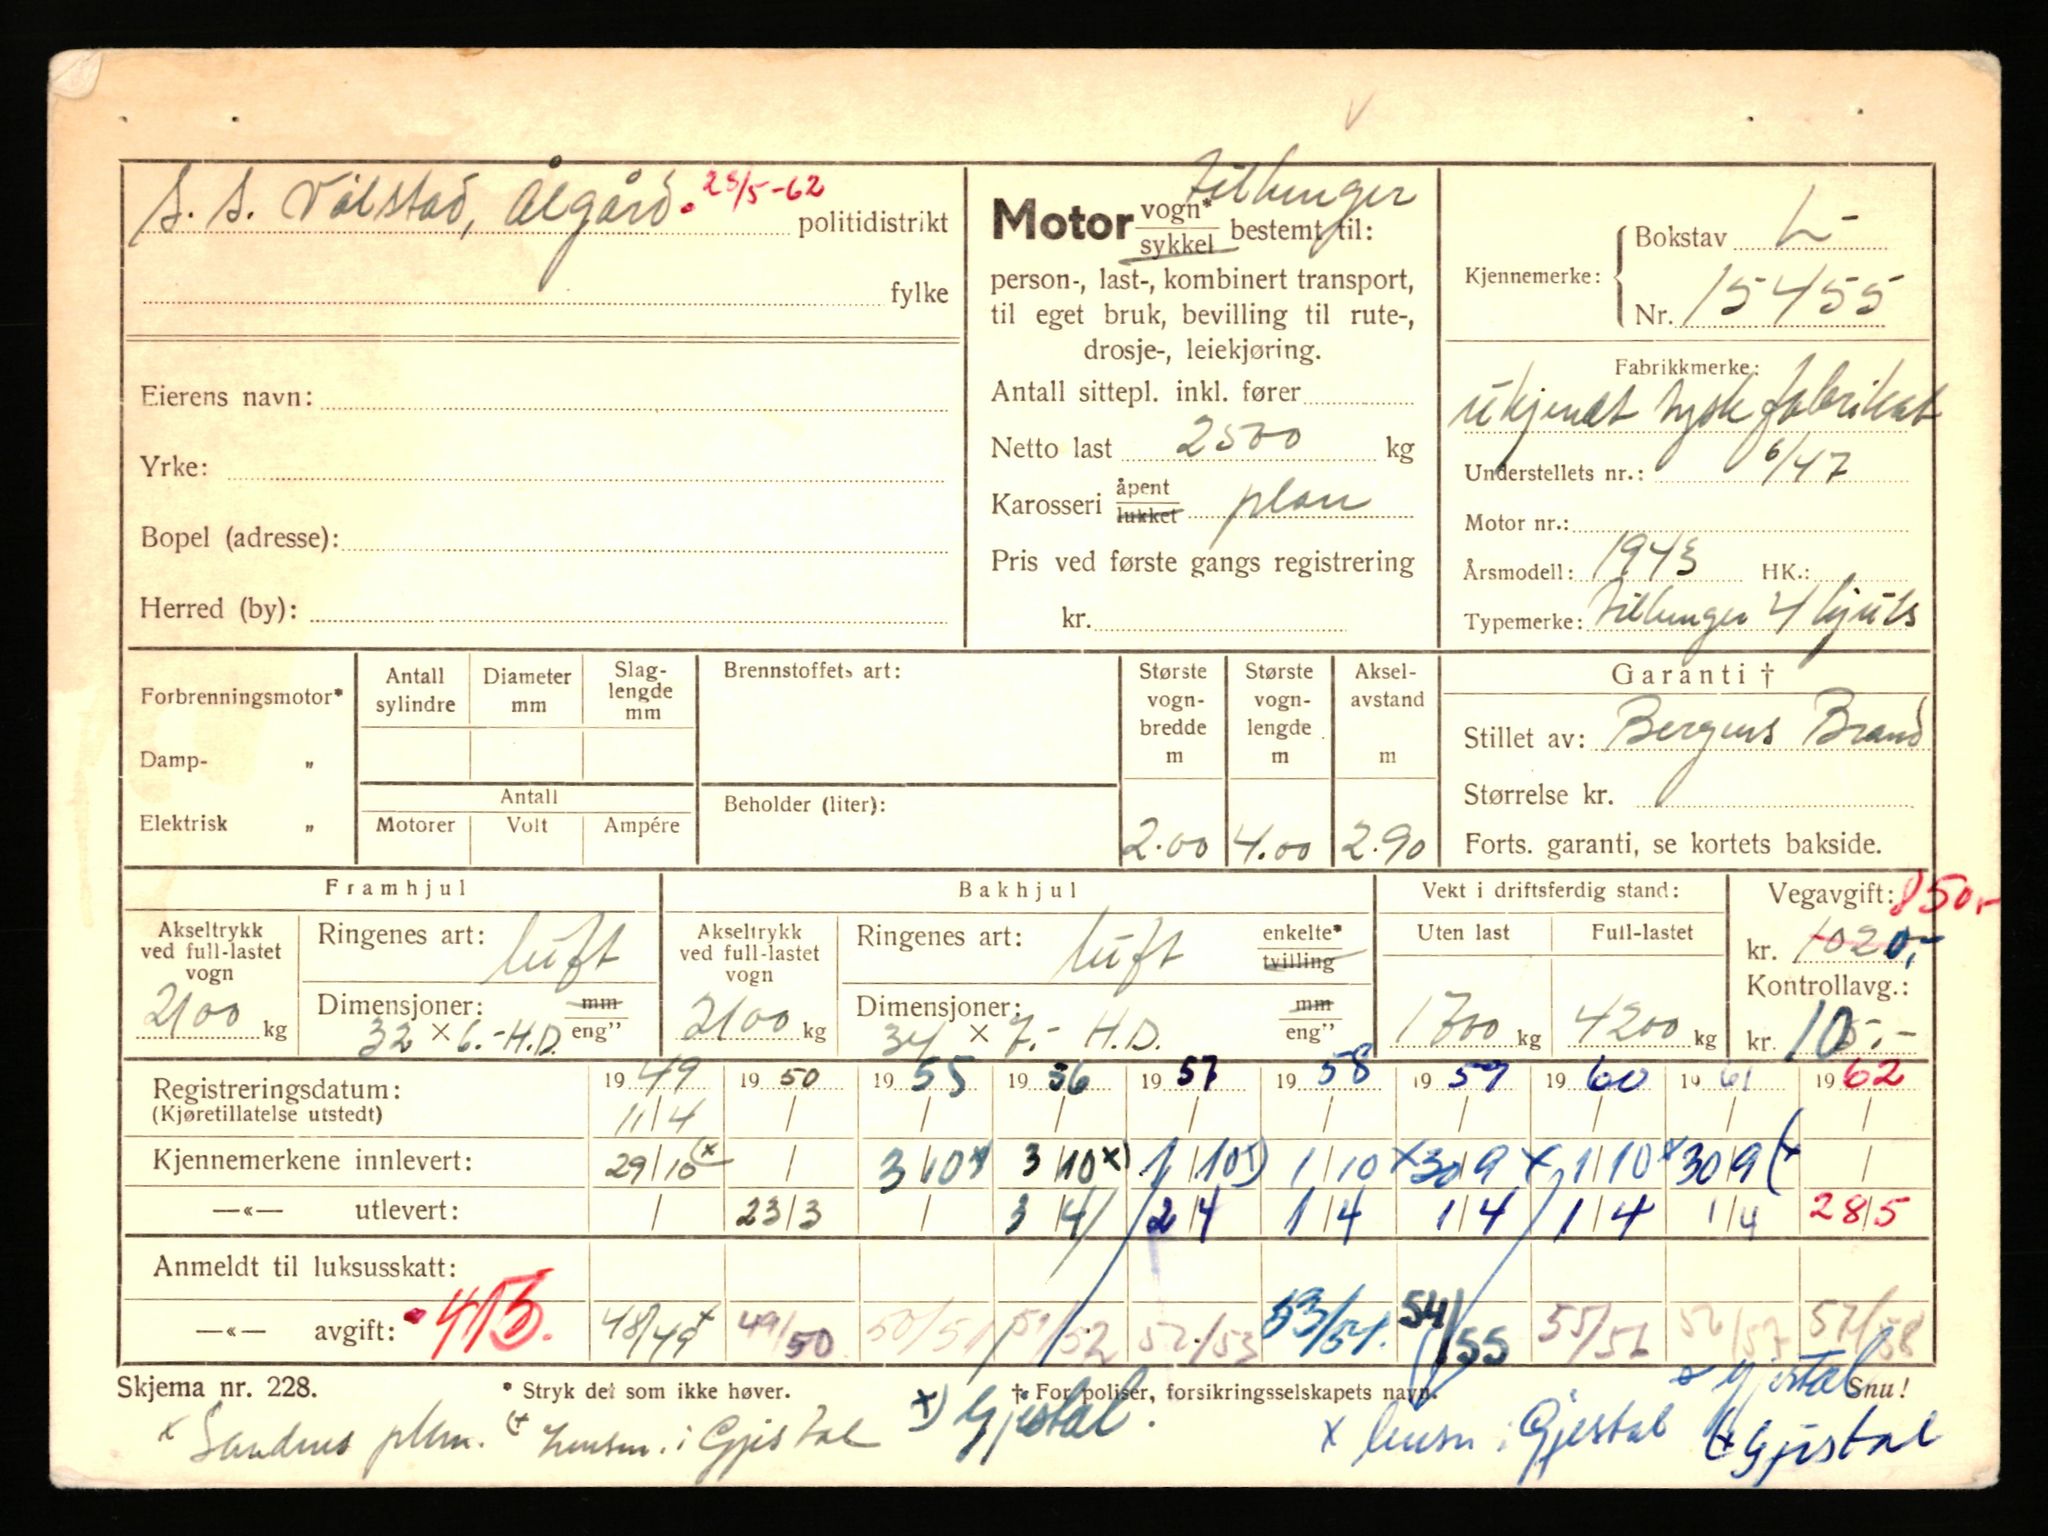 S. S. Vølstad, Ålgård. 28/5-62 politidistrikt
fylke
Eierens navn:
Yrke:
Bopel (adresse):
Herred (by):
tilhenger
Motor vogn* sykkel bestemt til:
person-, last-, kombinert transport,
til eget bruk, bevilling til rute-,
drosje-, leiekjøring.
Antall sittepl. inkl. fører
Netto last 2500 kg
Karosseri åpent lukket plan
Pris ved første gangs registrering
kr.
Kjennemerke: Bokstav L-
Nr. 15455
Fabrikkmerke:
Ukjendt tysk fabrikat
Understellets nr.: 6/47
Motor nr.:
Årsmodell: 1943 HK.:
Typemerke: tilhenger 4 hjuls
Forbrenningsmotor*
Damp- „
Elektrisk „
Antall sylindre
Diameter mm
Slag-lengde mm
Antall
Motorer Volt Ampére
Brennstoffets art:
Beholder (liter):
Største vogn-bredde m 2.00
Største vogn-lengde m 4.00
Aksel-avstand m 2.90
Garanti †
Stillet av: Bergens Brand
Størrelse kr.
Forts. garanti, se kortets bakside.
Framhjul
Akseltrykk ved full-lastet vogn 2100 kg
Ringenes art: luft
Dimensjoner: 32 × 6.- H.D. mm eng"
Bakhjul
Akseltrykk ved full-lastet vogn 2100 kg
Ringenes art: luft enkelte* tvilling
Dimensjoner: 34 × 7.- H.D. mm eng"
Vekt i driftsferdig stand:
Uten last 1700 kg
Full-lastet 4200 kg
Vegavgift: 850,-
kr. 1020,-
Kontrollavg.:
kr. 10.-
Registreringsdatum: 1949 1950 1955 1956 1957 1958 1959 1960 1961 1962
(Kjøretillatelse utstedt) 11/4 / / / / / / / / /
Kjennemerkene innlevert: 29/10 (x / 3/10 x) 3/10 x) 1/10 x) 1/10 x 30/9 x 1/10 x 30/9 (x /
—«— utlevert: / 23/3 / 3/4 2/4 1/4 1/4 1/4 1/4 28/5
Anmeldt til luksusskatt:
—«— avgift: 413. 48/49 x 49/50 50/51 51/52 52/53 53/54. 54/55 55/56 56/57 57/58
Skjema nr. 228. * Stryk det som ikke høver. † For poliser, forsikringsselskapets navn. Snu!
x Sandnes (x Lensm. i Gjestal x) Gjestal. x lensm i Gjestal x Gjestal (x Gjestal